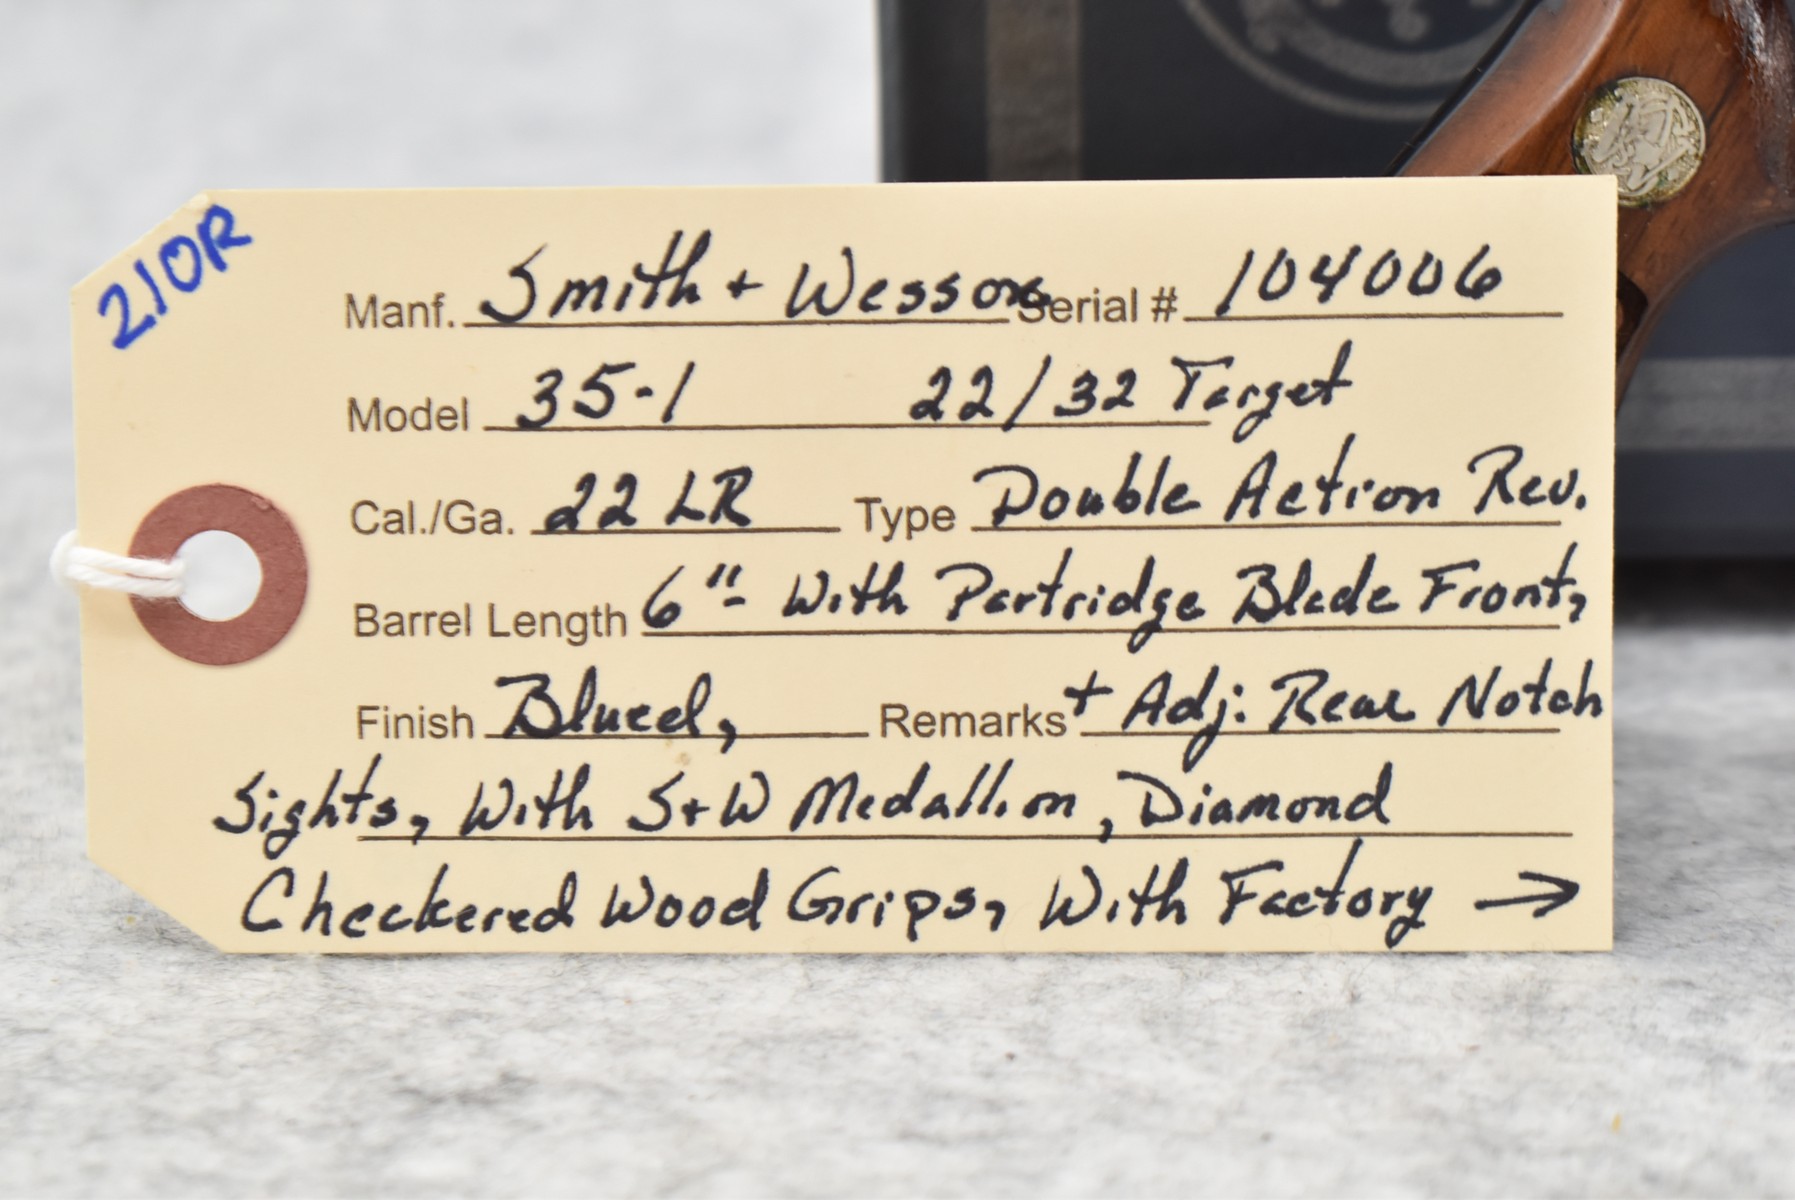 210R
Manf. Smith + Wesson Serial # 104006
Model 35-1 22/32 Target
Cal./Ga. 22 LR Type Double Action Rev.
Barrel Length 6" With Partridge Blade Front,
Finish Blued, Remarks + Adj. Rear Notch
Sights, With S+W Medallion, Diamond
Checkered Wood Grips, With Factory →